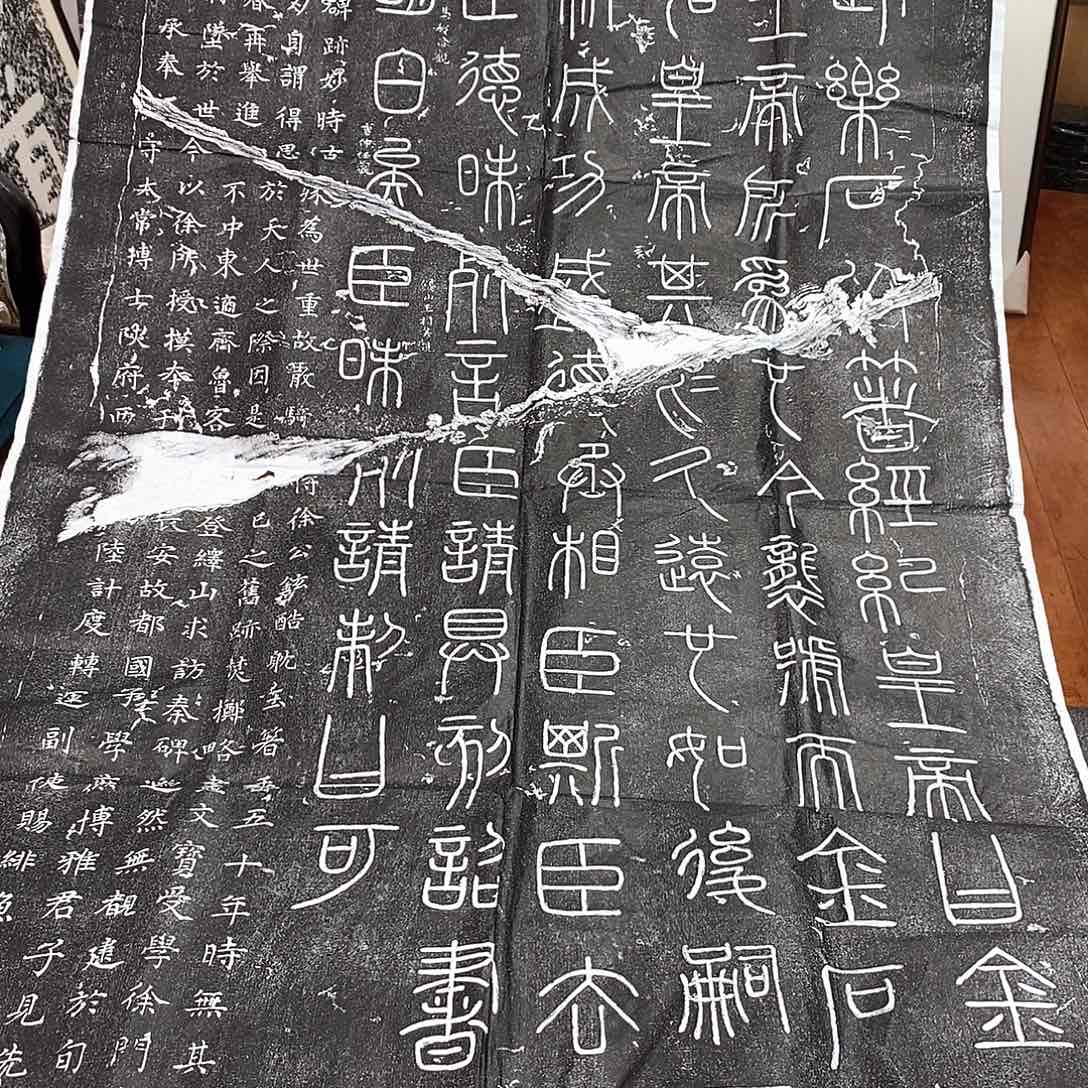 樂石以著經紀皇帝曰金
皇帝所為也今襲號而金石
皇帝其於久遠也如後嗣
成功盛德丞相臣斯臣去
臣德昧死言臣請具刻詔書
明白矣臣昧死請制曰可
跡妙時古殊為世重故散騎 侍徐公鉉酷耽玉箸垂五十年時無其
自謂得思於天人之際因是 己之舊跡焚擲略盡文寶受學徐門
春再舉進 不中東適齊魯客 登繹山求訪秦碑邈然無覩逮於旬
墜於世今以徐所授模本刊 長安故都國子學庶博雅君子見先
承奉 守太常博士陝府西 陸計度轉運副使賜緋魚